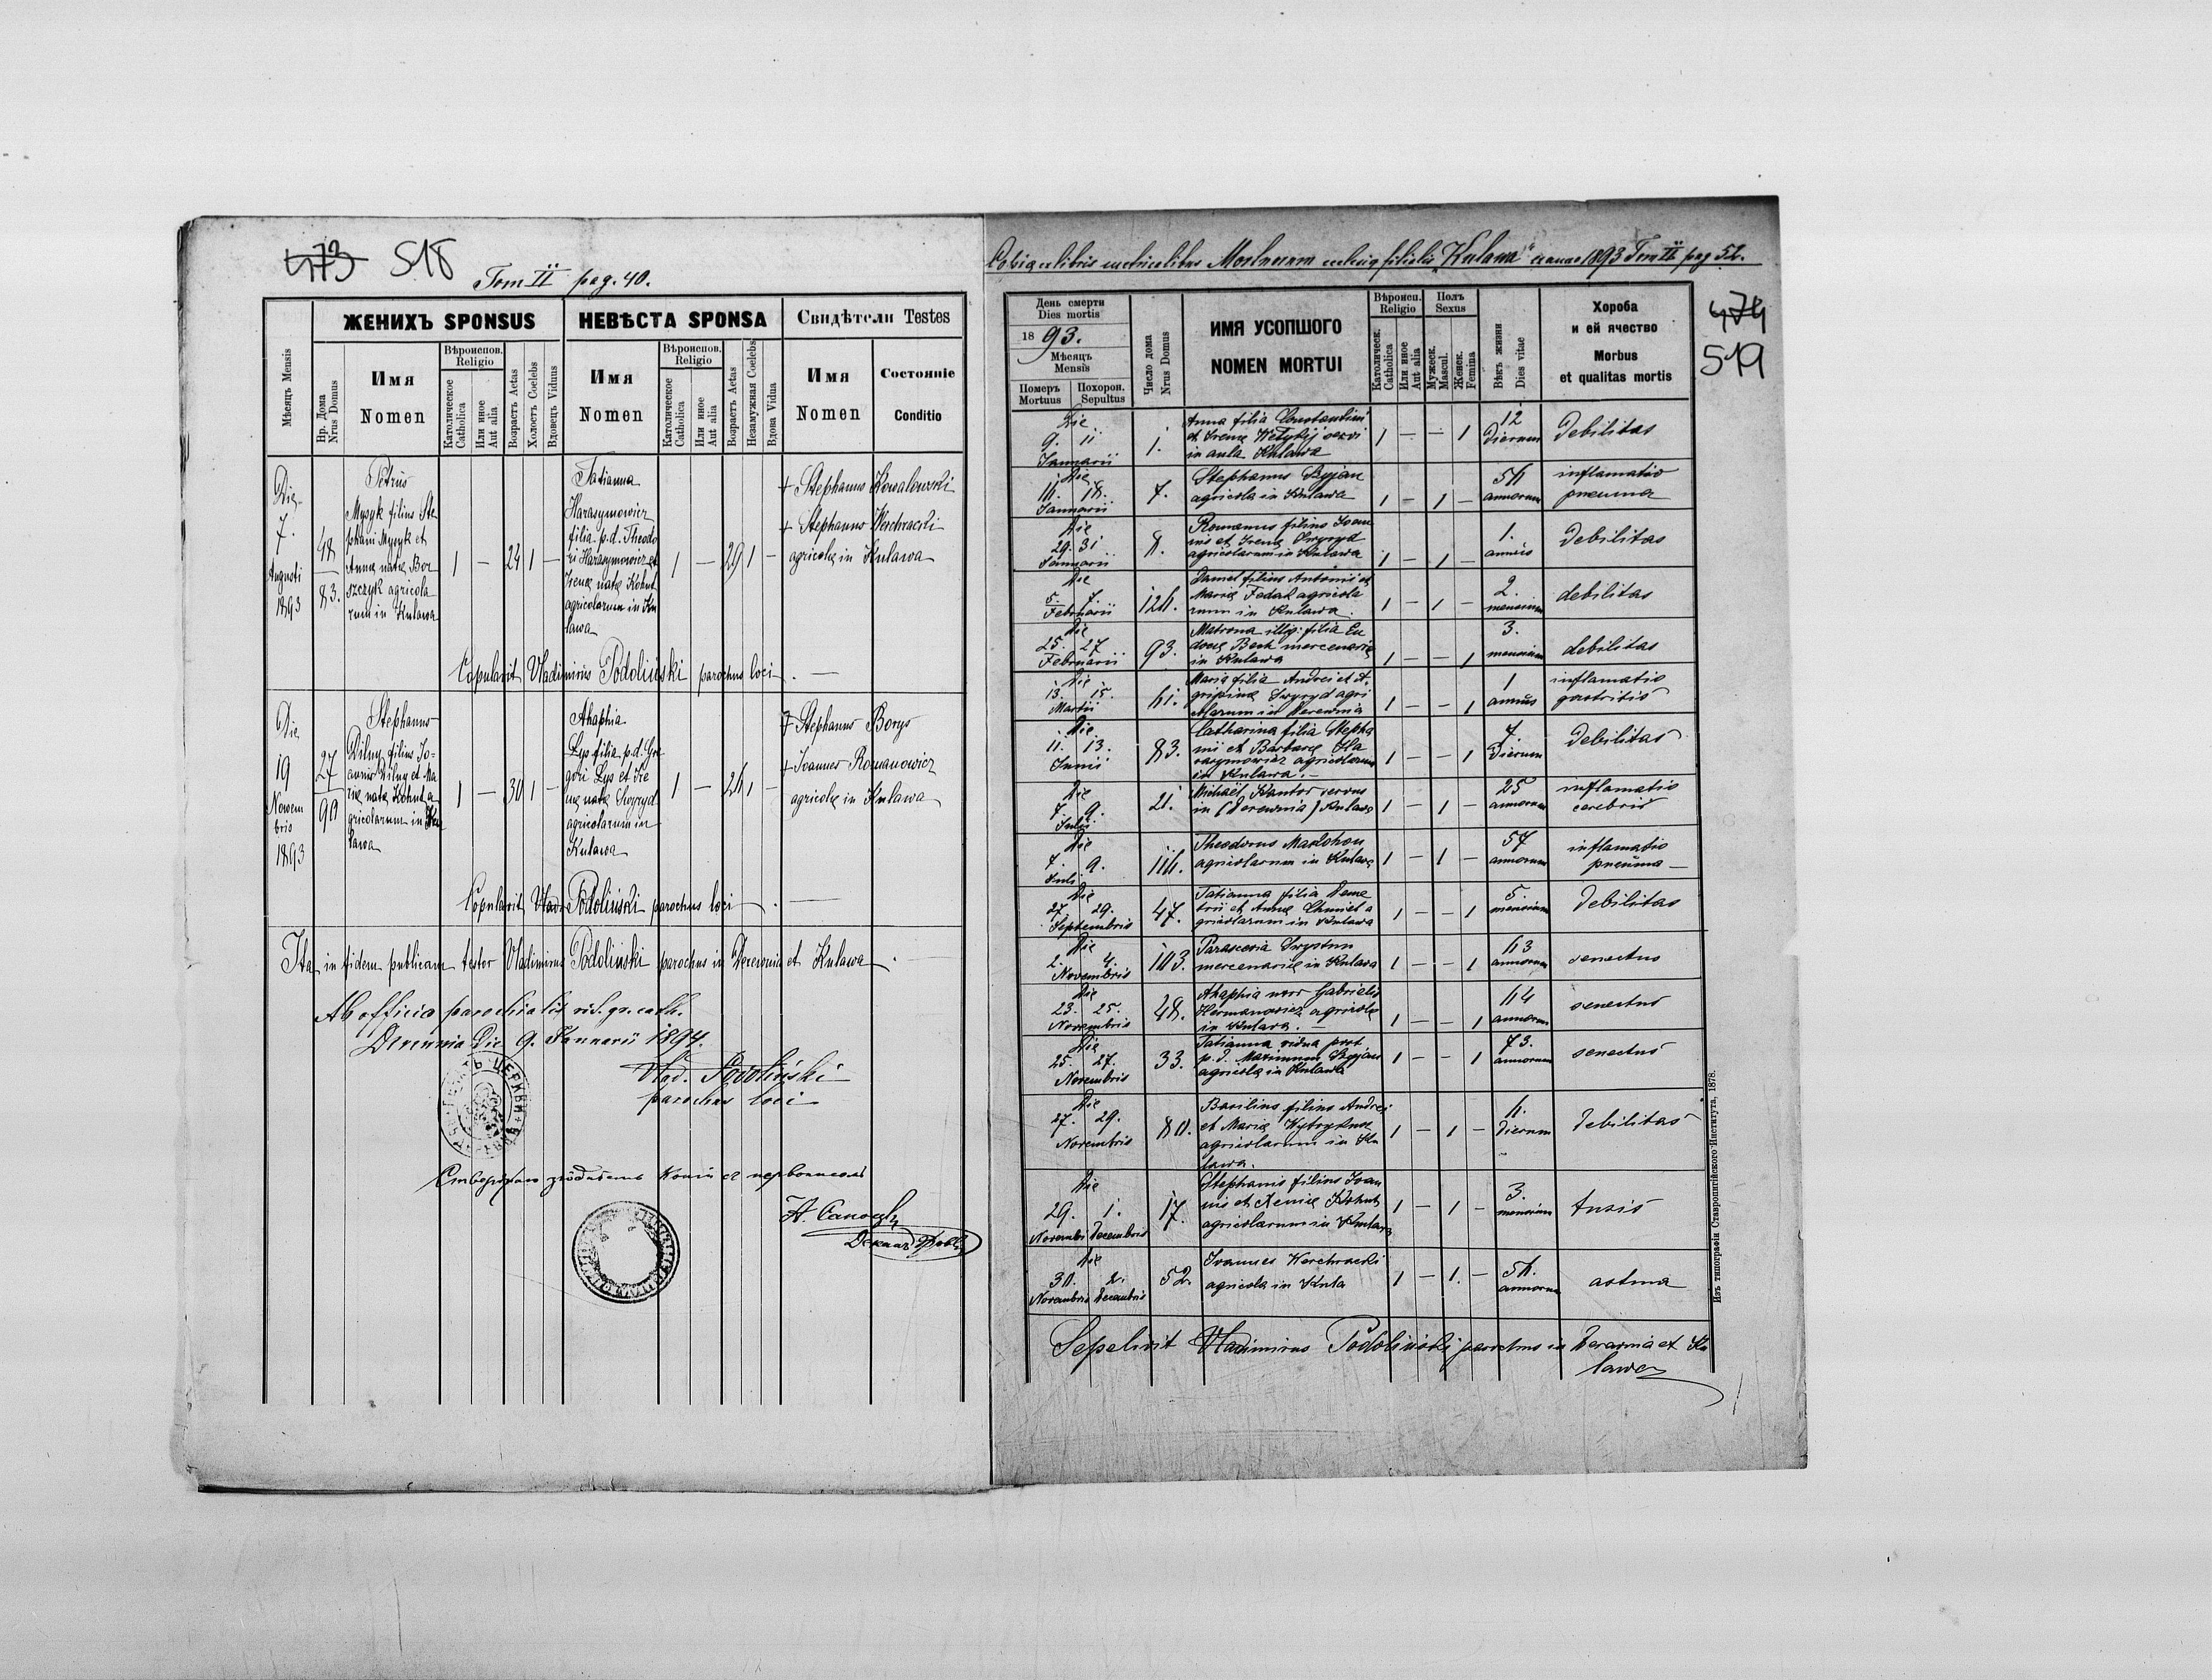 473 518
Tom II pag. 40.
ЖЕНИХЪ SPONSUS
НЕВѢСТА SPONSA
Свидѣтели Testes
Мѣсяцъ Mensis
Нр. Дома
Nrus Domus
Имя
Nomen
Вѣроиспов.
Religio
Католическое
Catholica
Или иное
Aut alia
Возрастъ Aetas
Холостъ Coelebs
Вдовецъ Viduus
Имя
Nomen
Вѣроиспов.
Religio
Католическое
Catholica
Или иное
Aut alia
Возрастъ Aetas
Незамужная Coelebs
Вдова Vidua
Имя
Nomen
Состояніе
Conditio
Die
7.
Augusti
1893
48
83.
Petrus
Mysyk filius Ste
phani Mysyk et
Annæ natæ Bor
szczyk agricola
rum in Kulawa
1 — 24 1 —
Tatianna
Harasymowicz
filia p.d. Theodo
ri Harasymowicz et
Irenæ natæ Kohut
agricolarum in Ku
lawa
1 — 29 1 —
+ Stephanus Kowalowski
+ Stephanus Werchracki
agricolæ in Kulawa
Copulavit Vladimirus Podoliński parochus loci
Die
19
Novem
bris
1893
27
90
Stephanus
Dilny filius Jo-
annis Dilny et Ma
riæ natæ Kohut a
gricolarum in Ku
lawa
1 — 30 1 —
Ahaphia
Lys filia p.d. Gre
gori Lys et Ire
næ natæ Swyryd
agricolarum in
Kulawa
1 — 24 1 —
+ Stephanus Borys
+ Joannes Romanowicz
agricolæ in Kulawa
Copulavit Vlad. Podoliński parochus loci
Ita in fidem publicam testor Vladimirus Podoliński parochus in Derewnia et Kulawa
Ab officio parochiali rit. gr. cath.
Derewnia Die 9. Januarii 1894.
Vlad. Podoliński
parochus loci
Copia ex libris metricalibus Mortuorum ecclesiæ filialis "Kulawa" ex anno 1893 Tom II pag 52.
474
519
День смерти
Dies mortis
1893.
Мѣсяцъ
Mensis
Померъ
Mortuus
Похорон.
Sepultus
Число дома
Nrus Domus
ИМЯ УСОПШОГО
NOMEN MORTUI
Вѣроисп.
Religio
Католическ.
Catholica
Или иное
Aut alia
Полъ
Sexus
Мужеск.
Mascul.
Женск.
Femina
Вѣкъ жизни
Dies vitae
Хороба
и ей ячество
Morbus
et qualitas mortis
Die
9. 11
Januarii
1.
Anna filia Constantini
et Irenæ Wełykij servi
in aula Kulawa
1 — — 1
12
Dierum
Debilitas
Die
16. 18.
Januarii
7.
Stephanus Szyjan
agricola in Kulawa
1 — 1 —
56
annorum
inflamatio
pneuma
Die
29. 31
Januarii
8.
Romanus filius Joan
nis et Irenæ Swyryd
agricolarum in Kulawa
1 — 1 —
1.
annus
Debilitas
Die
5. 7.
Februarii
126.
Daniel filius Antonii et
Mariæ Fedak agricola
rum in Kulawa
1 — 1 —
2.
mensium
debilitas
Die
25. 27
Februarii
93.
Matrona illig: filia Eu
dociæ Bech mercenariæ
in Kulawa
1 — — 1
3.
mensium
debilitas
Die
13. 15.
Martii
61.
Maria filia Andrei et A-
gripinæ Swyryd agri
colarum in Derewnia
1 — — 1
1
annus
inflamatio
gastritis
Die
11. 13.
Junii
83.
Catharina filia Stepha
ni et Barbaræ Ha
rasymowicz agricolarum
in Kulawa. —
1 — — 1
7.
Dierum
Debilitas
Die
7. 9.
Julii
21.
Michaël Kantor servus
in (Derewnia) Kulawa
1 — 1 —
25
annorum
inflamatio
cerebris
Die
7. 9.
Juli
116.
Theodorus Maslohon
agricolarum in Kulawa
1 — 1 —
57
annorum
inflamatio
pneuma —
Die
27. 29.
Septembris
47.
Tatianna filia Deme
trii et Annæ Chmil a
gricolarum in Kulawa
1 — — 1
5.
mensium
Debilitas
Die
2. 4.
Novembris
103.
Parascevia Swystun
mercenaria in Kulawa
1 — — 1
63
annorum
senectus
Die
23. 25.
Novembris
28.
Ahaphia uxor Gabrielis
Hermanowicz agricolæ
in Kulawa. —
1 — — 1
64
annorum
senectus
Die
25. 27.
Novembris
33.
Tatianna vidua post
p.d. Maximum Szyjan
agricolæ in Kulawa
1 — — 1
73.
annorum
senectus
Die
27. 29.
Novembris
80.
Basilius filius Andrei
et Mariæ
agricolarum in Ku
lawa.
1 — 1 —
6.
Dierum
Debilitas
Die
29. 1.
Novembris Decembris
17.
Stephanus filius Joan
nis et Xeniæ Kohut
agricolarum in Kulawa
1 — 1 —
3.
mensium
tusis
Die
30. 2.
Novembris Decembris
52.
Joannes Werchracki
agricola in Kula
1 — 1. —
56.
annorum
astma
Sepelivit Vladimirus Podoliński parochus in Derewnia et Ku
lawa
Изъ типографіи Ставропигійского Института, 1878.